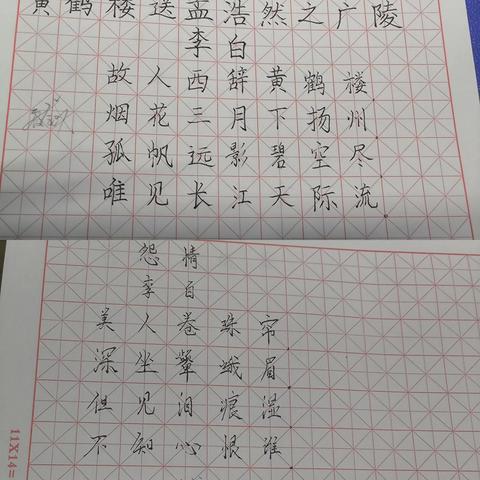 黄鹤楼送孟浩然之广陵
李白
故人西辞黄鹤楼
烟花三月下扬州
孤帆远影碧空尽
唯见长江天际流
怨情
李白
美人卷珠帘
深坐颦蛾眉
但见泪痕湿
不知心恨谁
11X14=